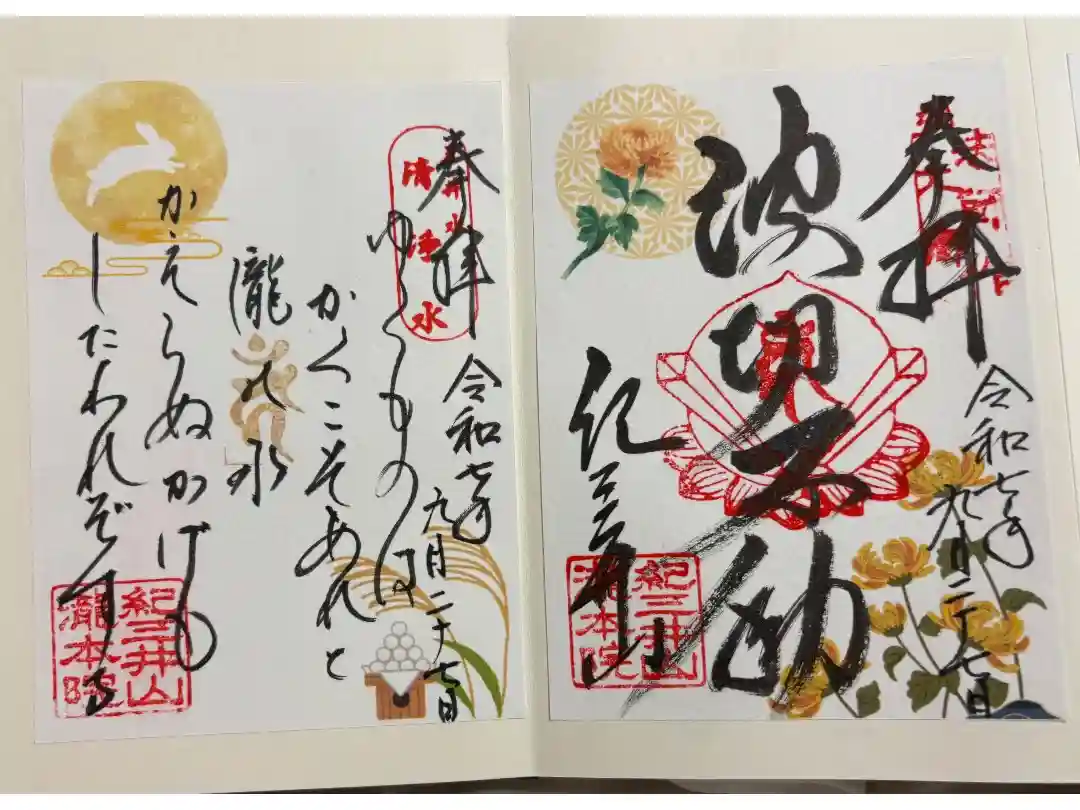 奉拝
令和七年
九月二十七日
波切不動
紀三井寺
紀三井山
瀧本院
奉拝
令和七年
九月二十七日
ゆくものは
かくこそあれと
瀧の水
かえらぬかげも
したわれぞする
紀三井山
瀧本院